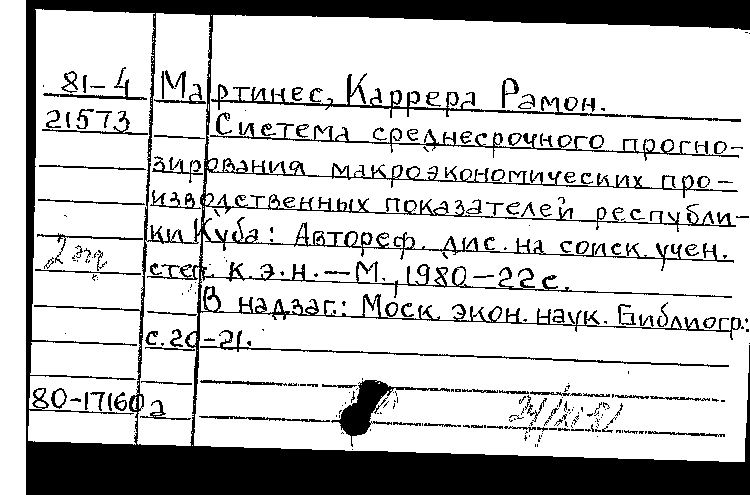 81-4 Мартинес, Каррера Рамон.
21573 Система среднесрочного прогно-
зирования макроэкономических про-
изводственных показателей республи-
ки Куба: Автореф. дис. на соиск. учен.
2 эк
степ. к.э.н. — М., 1980 — 22 с.
В надзаг.: Моск. экон. наук. Библиогр.:
с. 20-21.
80-17160